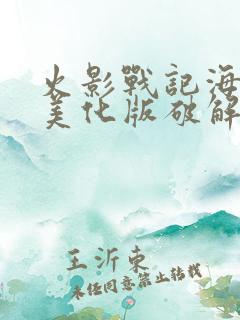 火影戰記海
美化版破解
王沂東
未經同意禁止轉載